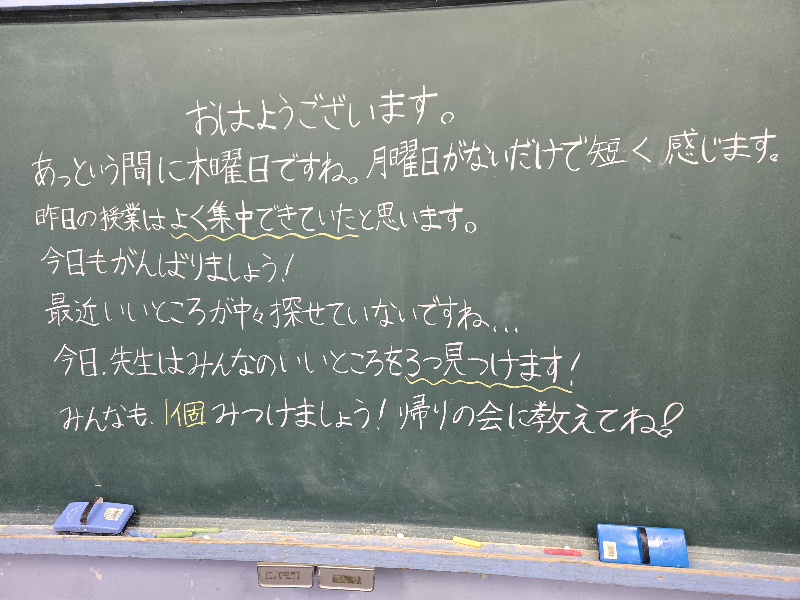 おはようございます。
あっという間に木曜日ですね。月曜日がないだけで短く感じます。
昨日の授業はよく集中できていたと思います。
今日もがんばりましょう!
最近いいところが中々探せていないですね...
今日、先生はみんなのいいところを3つ見つけます!
みんなも、1個みつけましょう!帰りの会に教えてね!